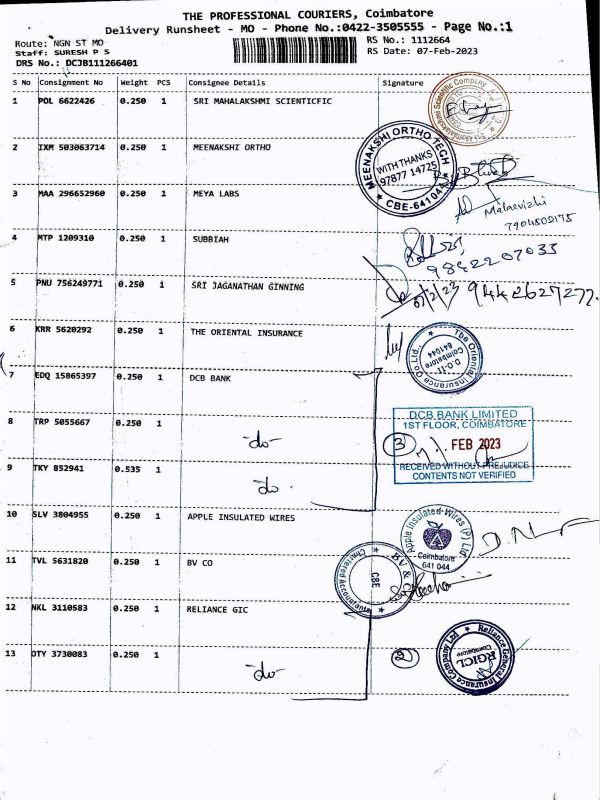 THE PROFESSIONAL COURIERS, Coimbatore
Delivery Runsheet - MO - Phone No.:0422-3505555 - Page No.:1
Route: NGN ST MO
RS No.: 1112664
Staff: SURESH P S
RS Date: 07-Feb-2023
DRS No.: DCJB111266401
S No Consignment No Weight PCS Consignee Details Signature
1 POL 6622426 0.250 1 SRI MAHALAKSHMI SCIENTICFIC
2 IXM 503063714 0.250 1 MEENAKSHI ORTHO
MEENAKSHI ORTHO TECH
WITH THANKS
97877 14725
CBE-641044
3 MAA 296652960 0.250 1 MEYA LABS
Malarvizhi
7904502175
4 MTP 1209310 0.250 1 SUBBIAH
9842207033
5 PNU 756249771 0.250 1 SRI JAGANATHAN GINNING
07/2/23 9442627277
6 KRR 5620292 0.250 1 THE ORIENTAL INSURANCE
The Oriental Insurance Co. Ltd.,
D.O-II
Coimbatore
641044
7 EDQ 15865397 0.250 1 DCB BANK
8 TRP 5055667 0.250 1 -do-
DCB BANK LIMITED
1ST FLOOR, COIMBATORE
3 FEB 2023
RECEIVED WITHOUT PREJUDICE
CONTENTS NOT VERIFIED
9 TKY 852941 0.535 1 do
10 SLV 3804955 0.250 1 APPLE INSULATED WIRES
Apple Insulated-Wires (P) Ltd
Coimbatore
641 044
11 TVL 5631820 0.250 1 BV CO
BV &
Chartered Accountants
CBE
12 NKL 3110583 0.250 1 RELIANCE GIC
13 OTY 3730083 0.250 1 -do-
2
Reliance General Insurance Company Ltd
RGICL
Coimbatore